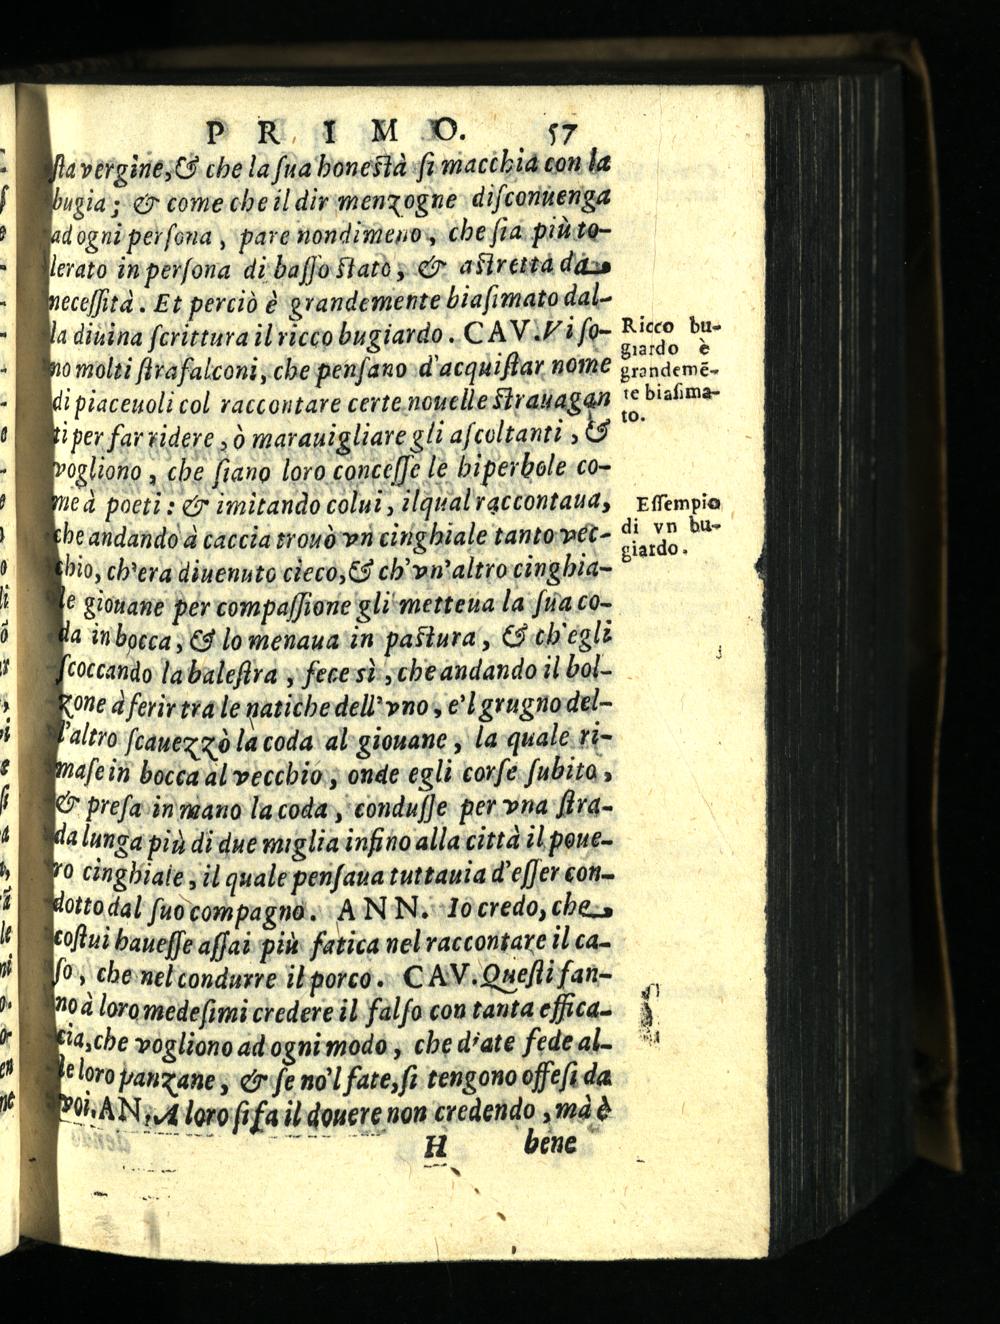 PRIMO. 57
ſta vergine, & che la ſua honeſtà ſi macchia con la
bugia; & come che il dir menzogne diſconuenga
ad ogni perſona, pare nondimeno, che ſia più to-
lerato in perſona di baſſo ſtato, & aſtretta da
neceſſità. Et perciò è grandemente biaſimato dal-
la diuina ſcrittura il ricco bugiardo. CAV. Vi ſo-
no molti ſtrafalconi, che penſano d'acquiſtar nome
di piaceuoli col raccontare certe nouelle ſtrauagan
ti per far ridere, ò marauigliare gli aſcoltanti, &
vogliono, che ſiano loro conceſſe le hiperbole co-
me à poeti: & imitando colui, ilqual raccontaua,
che andando à caccia trouò vn cinghiale tanto vec-
chio, ch'era diuenuto cieco, & ch'vn'altro cinghia-
le giouane per compaſſione gli metteua la ſua co-
da in bocca, & lo menaua in paſtura, & ch'egli
ſcoccando la baleſtra, fece sì, che andando il bol-
zone à ferir tra le natiche dell'vno, e'l grugno del-
l'altro ſcauezzò la coda al giouane, la quale ri-
maſe in bocca al vecchio, onde egli corſe ſubito,
& preſa in mano la coda, conduſſe per vna ſtra-
da lunga più di due miglia infino alla città il poue-
ro cinghiale, il quale penſaua tuttauia d'eſſer con-
dotto dal ſuo compagno. ANN. Io credo, che
coſtui haueſſe aſſai più fatica nel raccontare il ca-
ſo, che nel condurre il porco. CAV. Queſti fan-
no à loro medeſimi credere il falſo con tanta effica-
cia, che vogliono ad ogni modo, che diate fede al-
le loro panzane, & ſe no'l fate, ſi tengono offeſi da
voi. AN. A loro ſi fa il douere non credendo, mà è
H bene
Ricco bu-
giardo è
grandemē-
te biaſima-
to.
Eſſempio
di vn bu-
giardo.